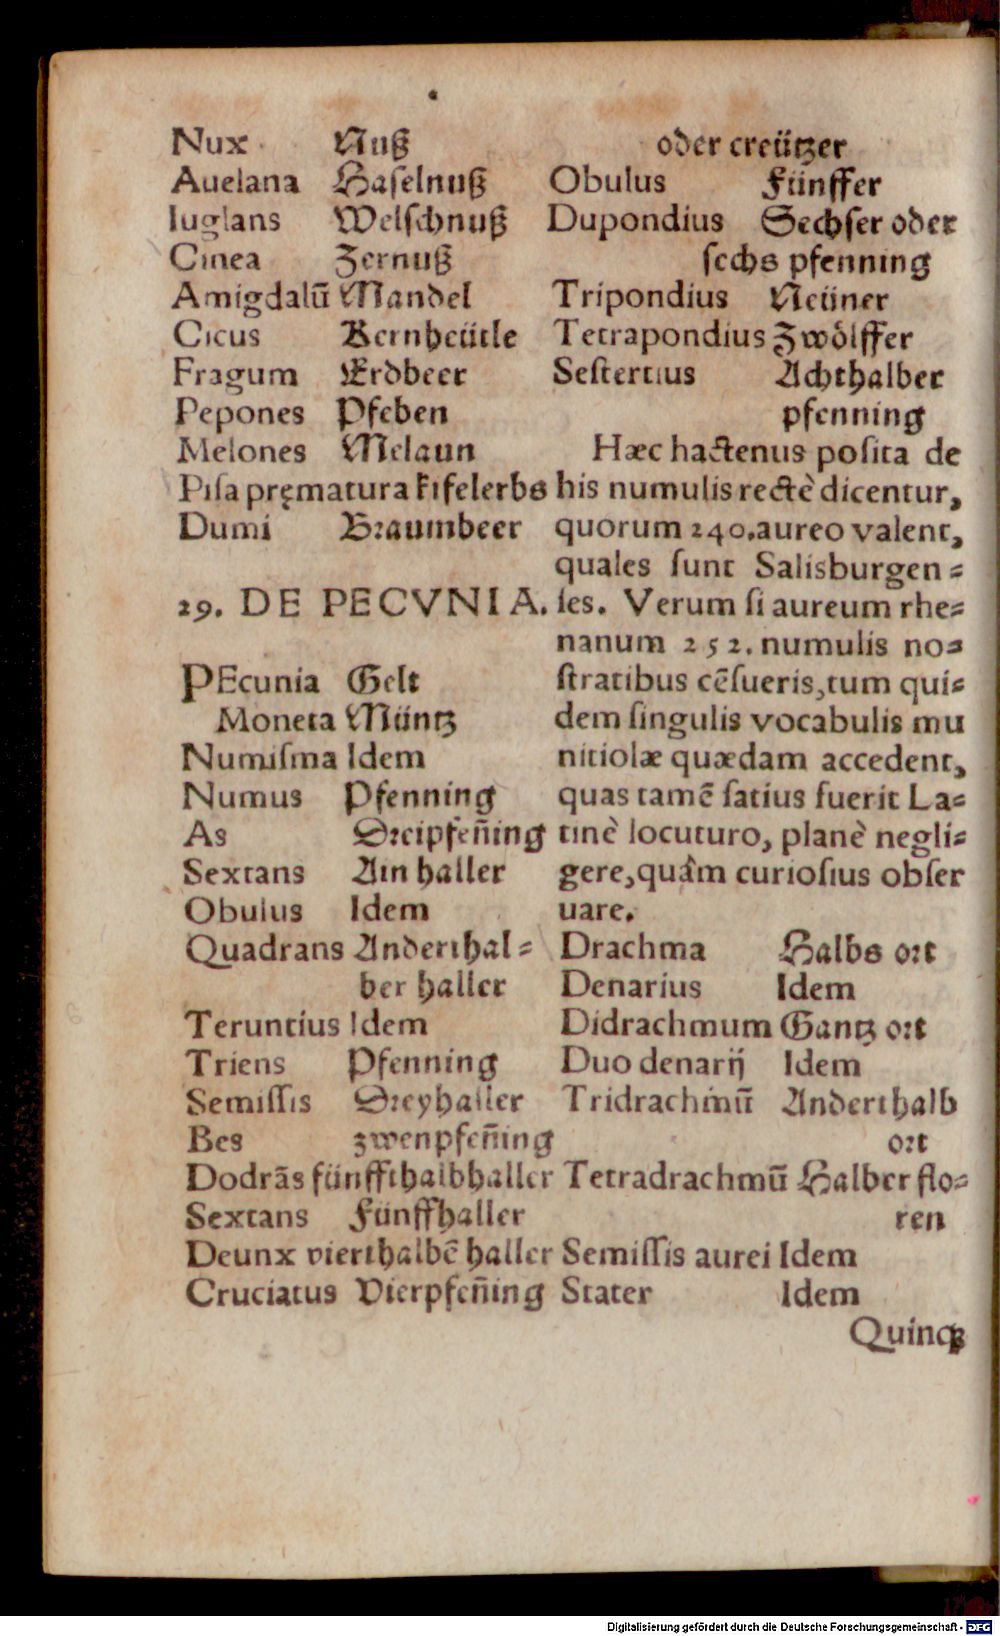 Nux Nuß
Auelana Haſelnuß
Iuglans Welſchnuß
Cinea Zernuß
Amigdalū Mandel
Cicus Kernheütle
Fragum Erdbeer
Pepones Pfeben
Melones Melaun
Piſa pręmatura kifelerbs
Dumi Braumbeer
29. DE PECVNIA.
PEcunia Gelt
Moneta Müntz
Numiſma Idem
Numus Pfenning
As Dreipfeñing
Sextans Ain haller
Obulus Idem
Quadrans Anderthal⸗
ber haller
Teruntius Idem
Triens Pfenning
Semiſſis Dreyhaller
Bes zwenpfeñing
Dodrãs fünffthalbhaller
Sextans Fünffhaller
Deunx vierthalbē haller
Cruciatus Vierpfeñing
oder creützer
Obulus Fünffer
Dupondius Sechſer oder
ſechs pfenning
Tripondius Neüner
Tetrapondius Zwölffer
Seſtertius Achthalber
pfenning
Hæc hactenus poſita de
his numulis rectè dicentur,
quorum 240. aureo valent,
quales ſunt Salisburgen⸗
ſes. Verum ſi aureum rhe⸗
nanum 252. numulis no⸗
ſtratibus cēſueris, tum qui⸗
dem ſingulis vocabulis mu
nitiolæ quædam accedent,
quas tamē ſatius fuerit La⸗
tinè locuturo, planè negli⸗
gere, quàm curioſius obſer
uare.
Drachma Halbs ort
Denarius Idem
Didrachmum Gantz ort
Duo denarij Idem
Tridrachmū Anderthalb
ort
Tetradrachmū Halber flo⸗
ren
Semiſſis aurei Idem
Stater Idem
Quinqꝫ
Digitalisierung gefördert durch die Deutsche Forschungsgemeinschaft - DFG